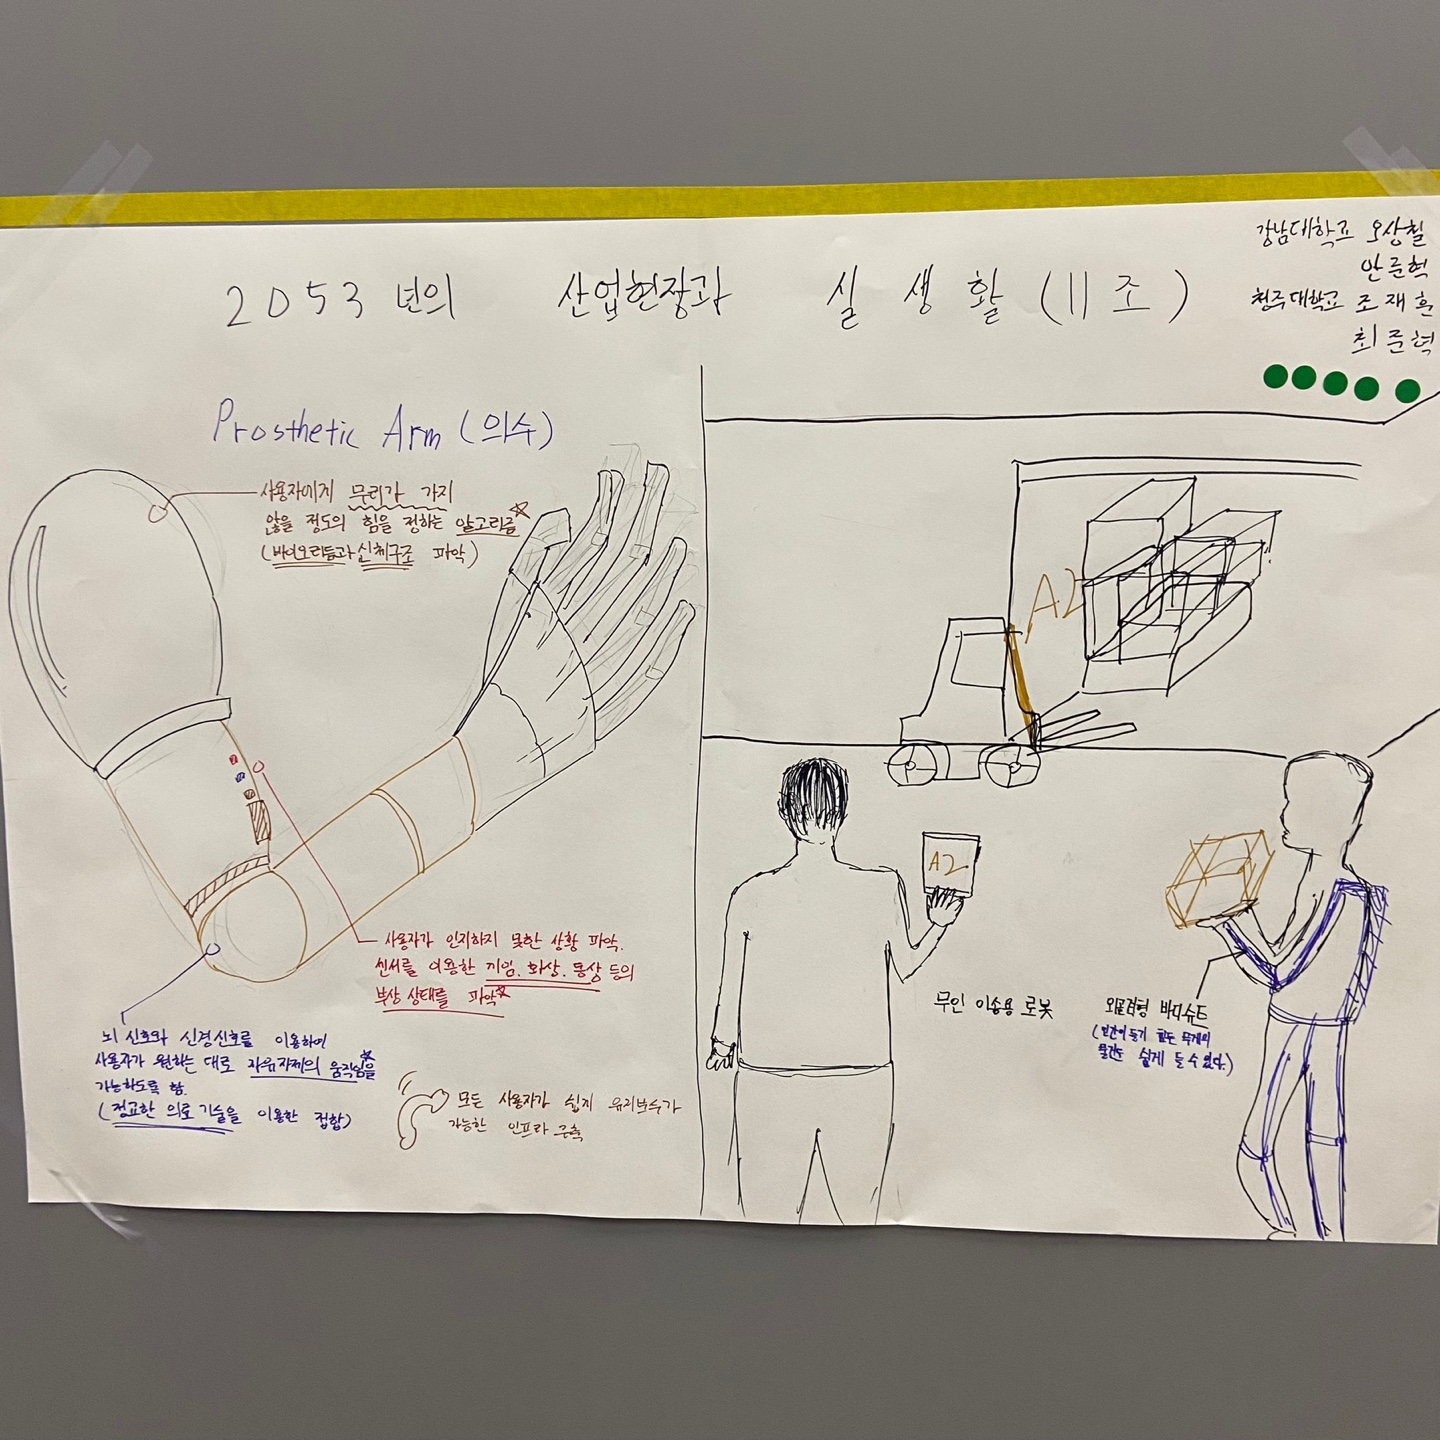 2053년의 산업현장과 실생활(11조)
강남대학교 오상칠
안준혁
청주대학교 조재훈
최준혁
Prosthetic Arm (의수)
사용자에게 무리가 가지
않을 정도의 힘을 정하는 알고리즘
(바이오리듬과 신체구조 파악)
사용자가 인지하지 못한 상황 파악.
센서를 이용한 끼임, 화상, 동상 등의
부상 상태를 파악
뇌 신호와 신경신호를 이용하여
사용자가 원하는 대로 자유자재의 움직임을
가능하도록 함.
(정교한 의료 기술을 이용한 접합)
모든 사용자가 쉽게 유지보수가
가능한 인프라 구축
A2
A2
무인 이송용 로봇
외골격형 바디슈트
(인간이 들기 힘든 무게의
물건도 쉽게 들 수 있다.)